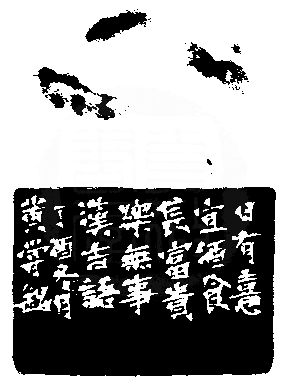 日有憙
宜酒食
長富貴
樂無事
漢吉語
丁酉月
黃